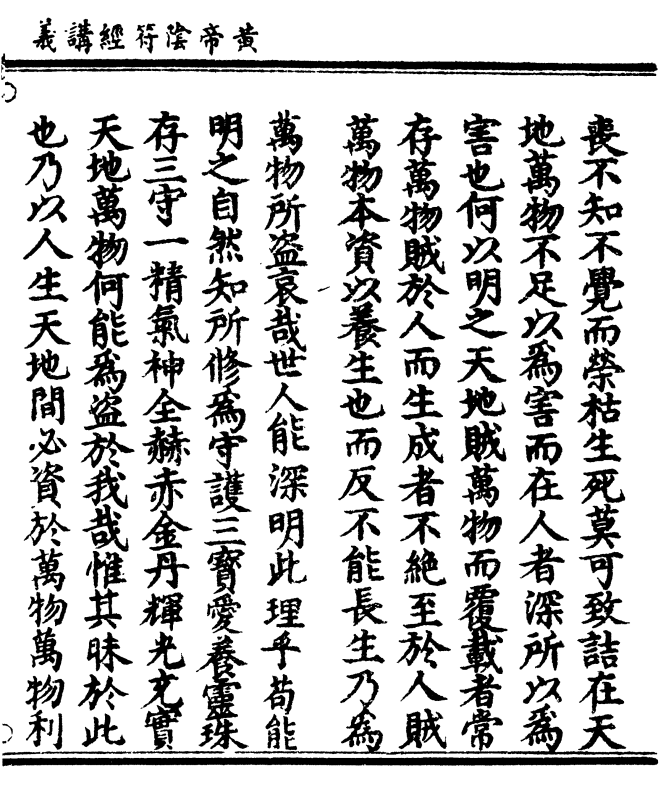 黃帝陰符經講義
喪不知不覺而榮枯生死莫可致詰在天
地萬物不足以爲害而在人者深所以爲
害也何以明之天地賊萬物而覆載者常
存萬物賊於人而生成者不絶至於人賊
萬物本資以養生也而反不能長生乃為
萬物所盜哀哉世人能深明此理乎苟能
明之自然知所修為守護三寶愛養靈珠
存三守一精氣神全赫赤金丹輝光充實
天地萬物何能爲盜於我哉惟其昧於此
也乃以人生天地間必資於萬物萬物利